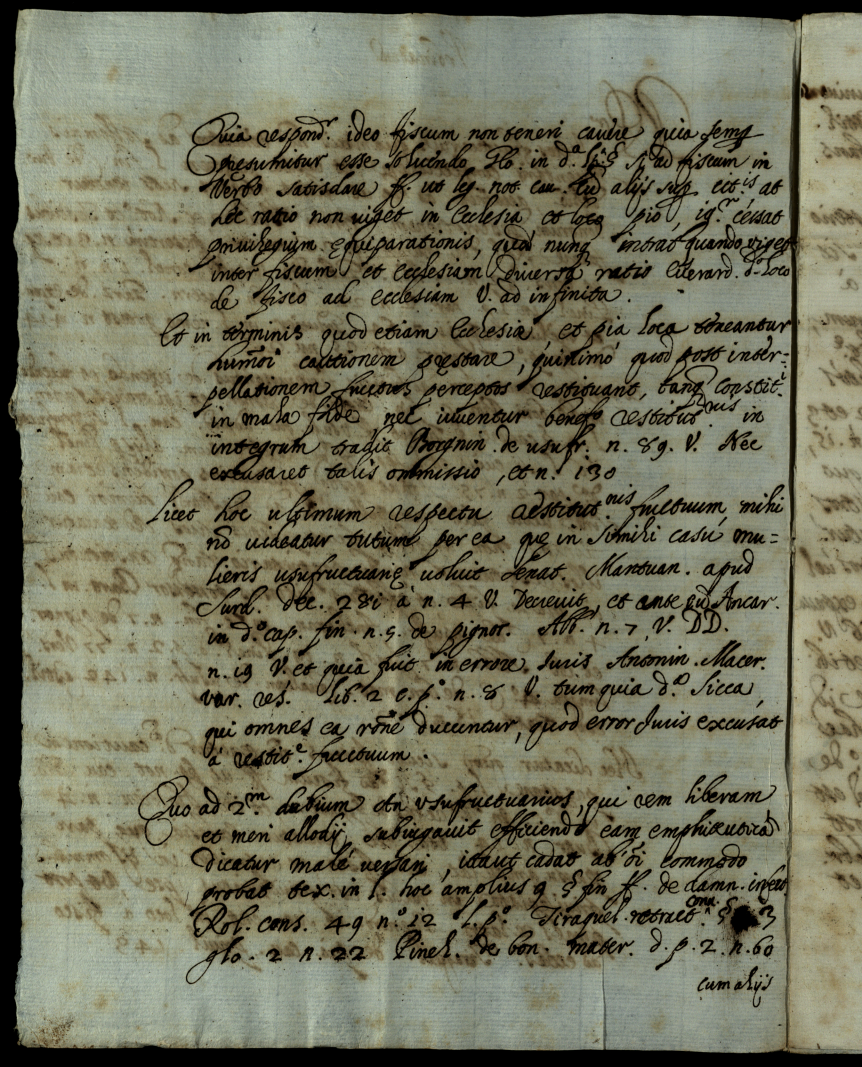 Quia respond.r ideo fiscum non teneri cavere quia semp
presumitur esse solvendo Glo. in d.a l. i. § si ad fiscum in
Verbo satisdare ff. ut leg. not. cau. cu alijs sup. cit.is at
hec ratio non viget in Ecclesia et loco pio, ig.r cessat
privilegium equiparationis, quod nunq intrat quando viget
inter fiscum et ecclesiam diversa ratio Everard. d.o loco
de fisco ad ecclesiam V. ad infinita.
Et in terminis quod etiam Ecclesia et pia loca teneantur
humoi cautionem prestare, quinimo quod post inter=
pellationem fructus perceptos restituant, tanq constit.
in mala fide, nec iuventur benef.o restitut.nis in
integrum tradit Borgnin. de usufr. n. 89. V. Nec
excusaret talis ommissio, et n. 130
Licet hoc ultimum respectu restitut.nis fructuum mihi
no videatur tutum per ea que in simili casu mu=
lieris usufructuarie voluit Senat. Mantuan. apud
Surd. dec. 281 à n. 4 V. Decrevit, et ante eu Ancar.
in d.o cap. fin. n. 5. de pignor. Abb. n. 7, V. DD.
n. 19 V. et quia fuit in errore Juris Antonin. Macer.
var. res. lib. 2 c. p.o n. 8 V. tum quia d.o Sicca,
qui omnes ea rone ducuntur, quod error Juris excusat
à restit.e fructuum.
Quo ad 2.m dubium An usufructuarius, qui rem liberam
et meri allodij subiugavit efficiendo eam emphiteutica
dicatur malé versari, itaut cadat ab oi commodo
probat tex. in l. hoc amplius 9 § fin ff. de damn. infect.
Rol. cons. 49 n.o 12 l. p.o Tiraquel. retract. § 3
glo. 2 n. 22 Pinel. de bon. mater. d. p. 2. n. 60
cum alijs